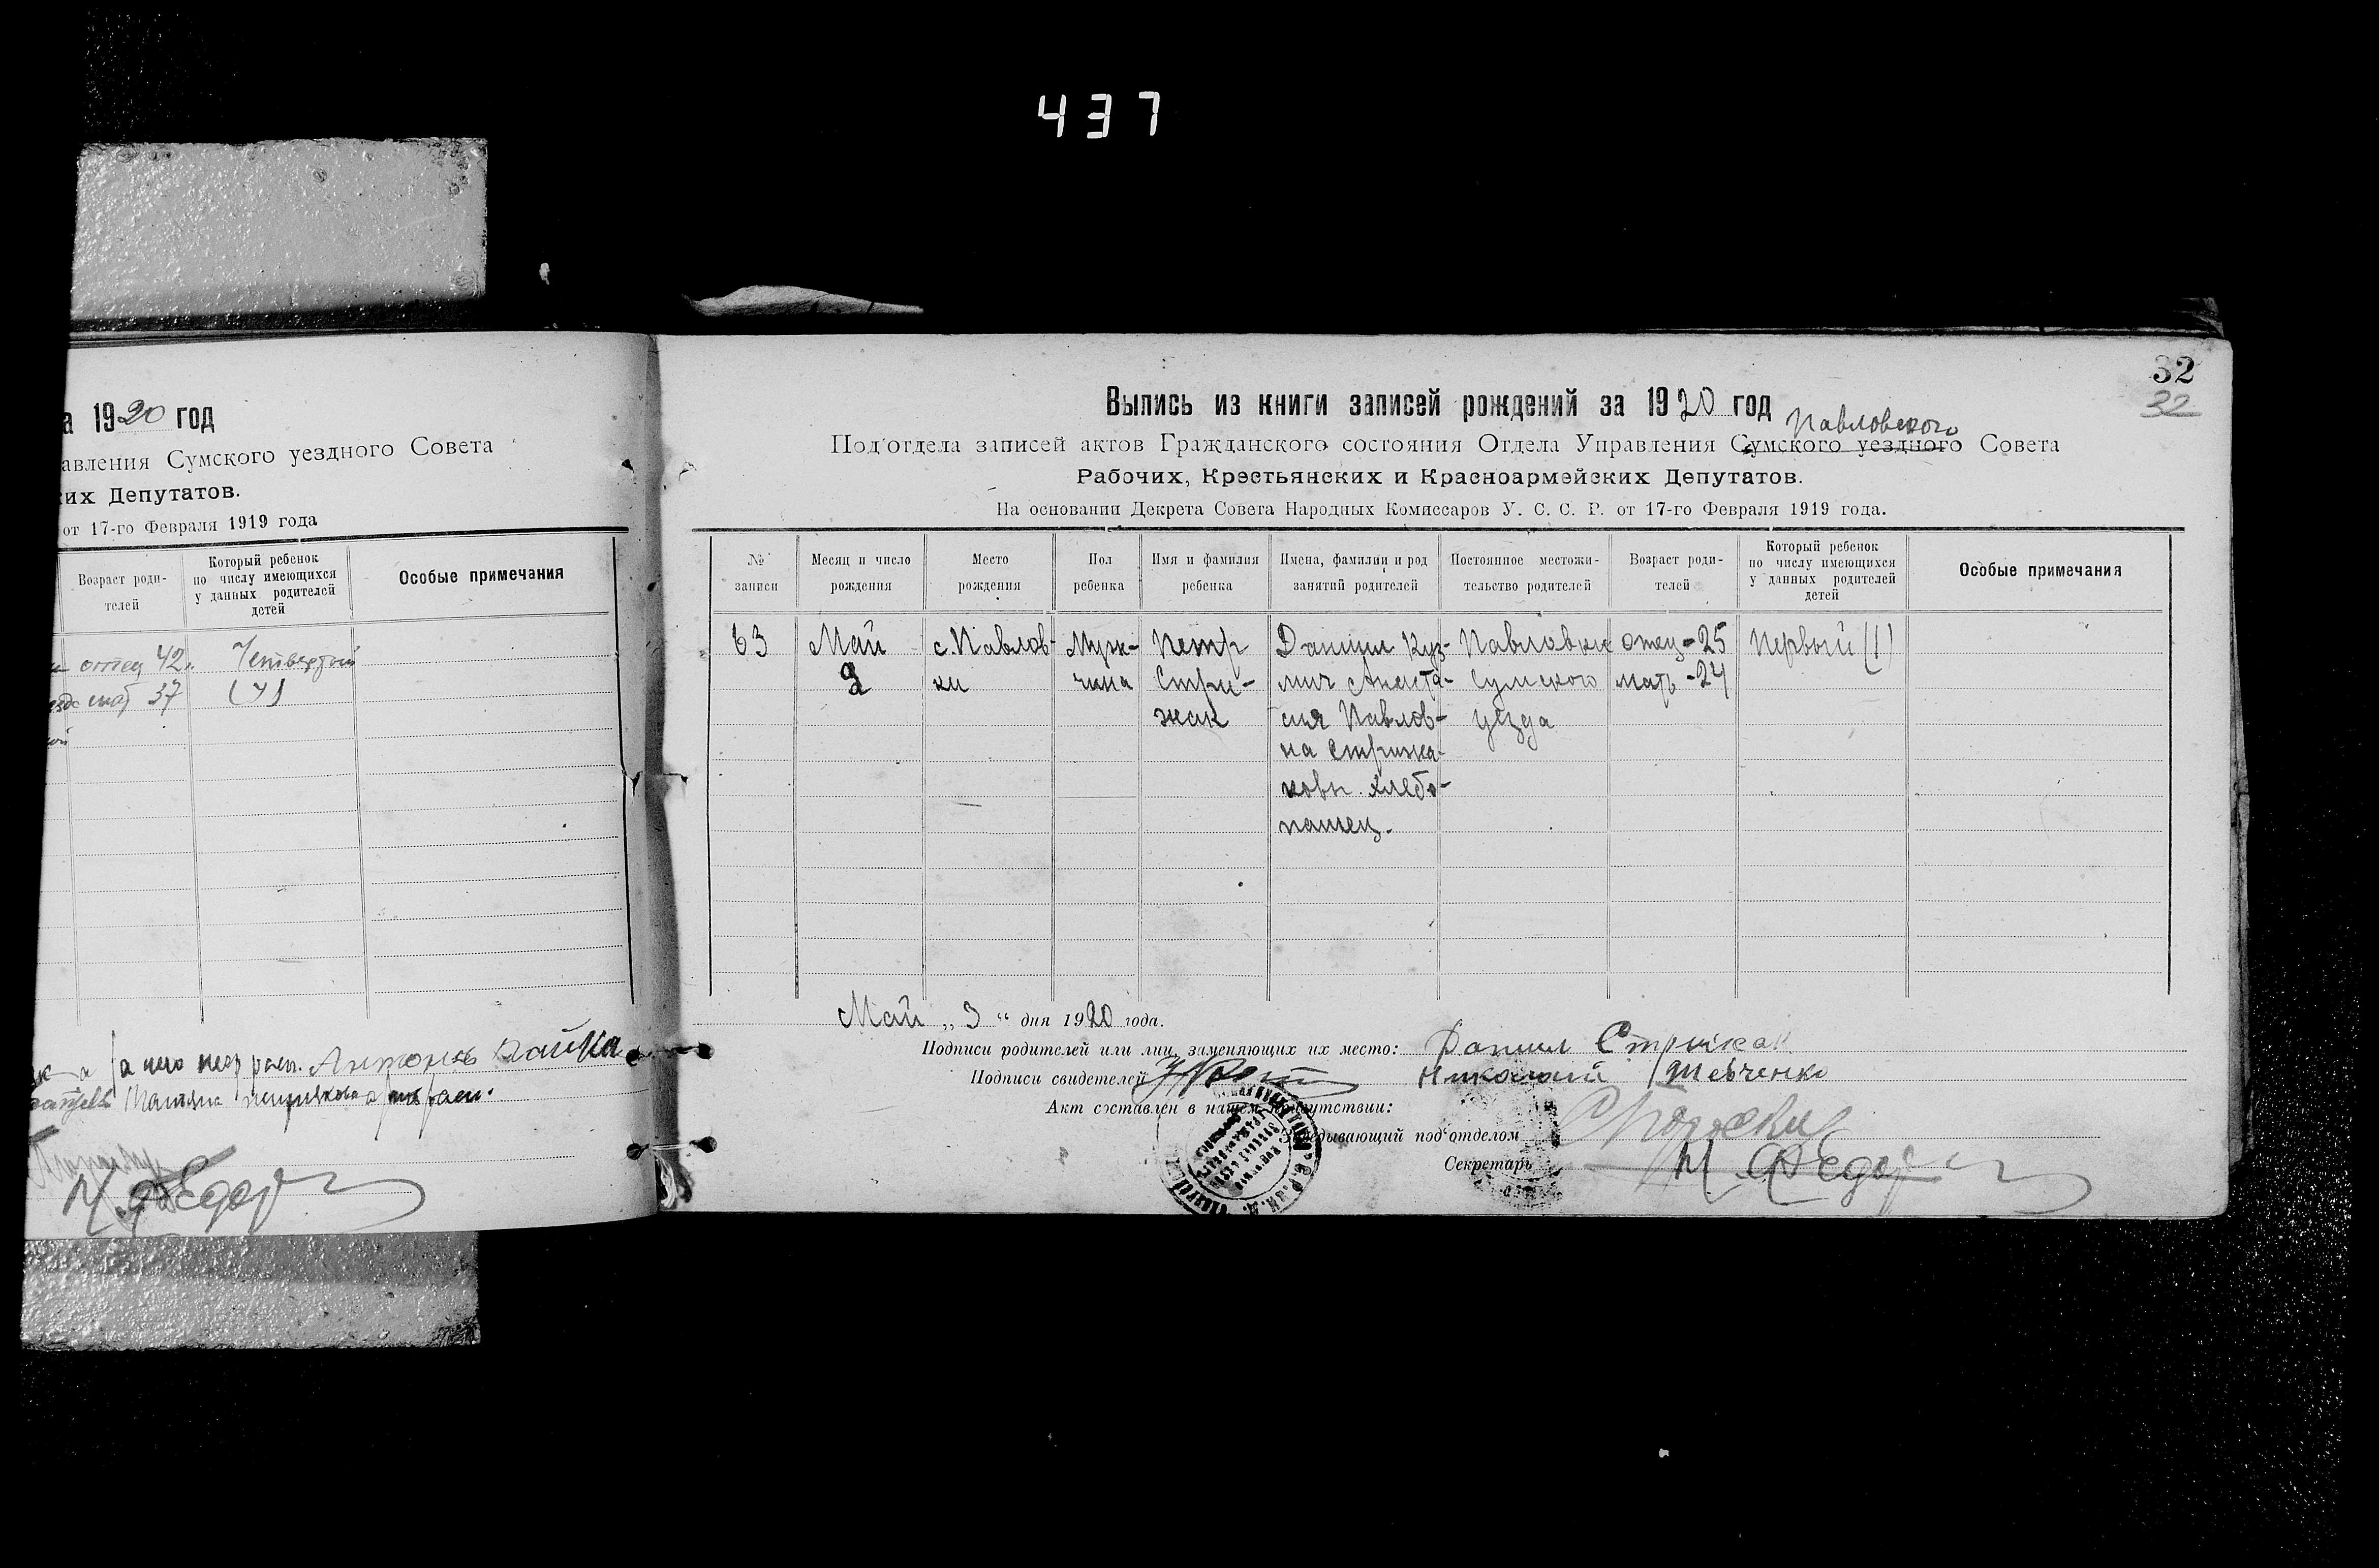 437
а 1920 год
авления Сумского уездного Совета
их Депутатов.
от 17-го Февраля 1919 года
Возраст роди-
телей
Который ребенок
по числу имеющихся
у данных родителей
детей
Особые примечания
отец 42. Четвертый
мат 37 (4)
Антонъ
М. Федор
32
32
Выпись из книги записей рождений за 1920 год
Павловского
Подотдела записей актов Гражданского состояния Отдела Управления Сумского уездного Совета
Рабочих, Крестьянских и Красноармейских Депутатов.
На основании Декрета Совета Народных Комиссаров У. С. С. Р. от 17-го Февраля 1919 года.
№
записи
Месяц и число
рождения
Место
рождения
Пол
ребенка
Имя и фамилия
ребенка
Имена, фамилии и род
занятий родителей
Постоянное местожи-
тельство родителей
Возраст роди-
телей
Который ребенок
по числу имеющихся
у данных родителей
детей
Особые примечания
63
Май
2
с. Павлов-
ки
Муж-
чина
Петр
Стри-
жак
Даниил Куз-
мич Анаста-
сия Павлов-
на Стрижа-
ковы. хлебо-
пашец.
Павловки
Сумского
уезда
отец - 25
мать - 24
Первый (1)
Май „ 3 “ дня 1920 года.
Подписи родителей или лиц, заменяющих их место: Данил Стрижак
Подписи свидетелей Николай Шевченко
Акт составлен в нашем присутствии:
Заведывающий под‘отделом
Секретарь М. Федор